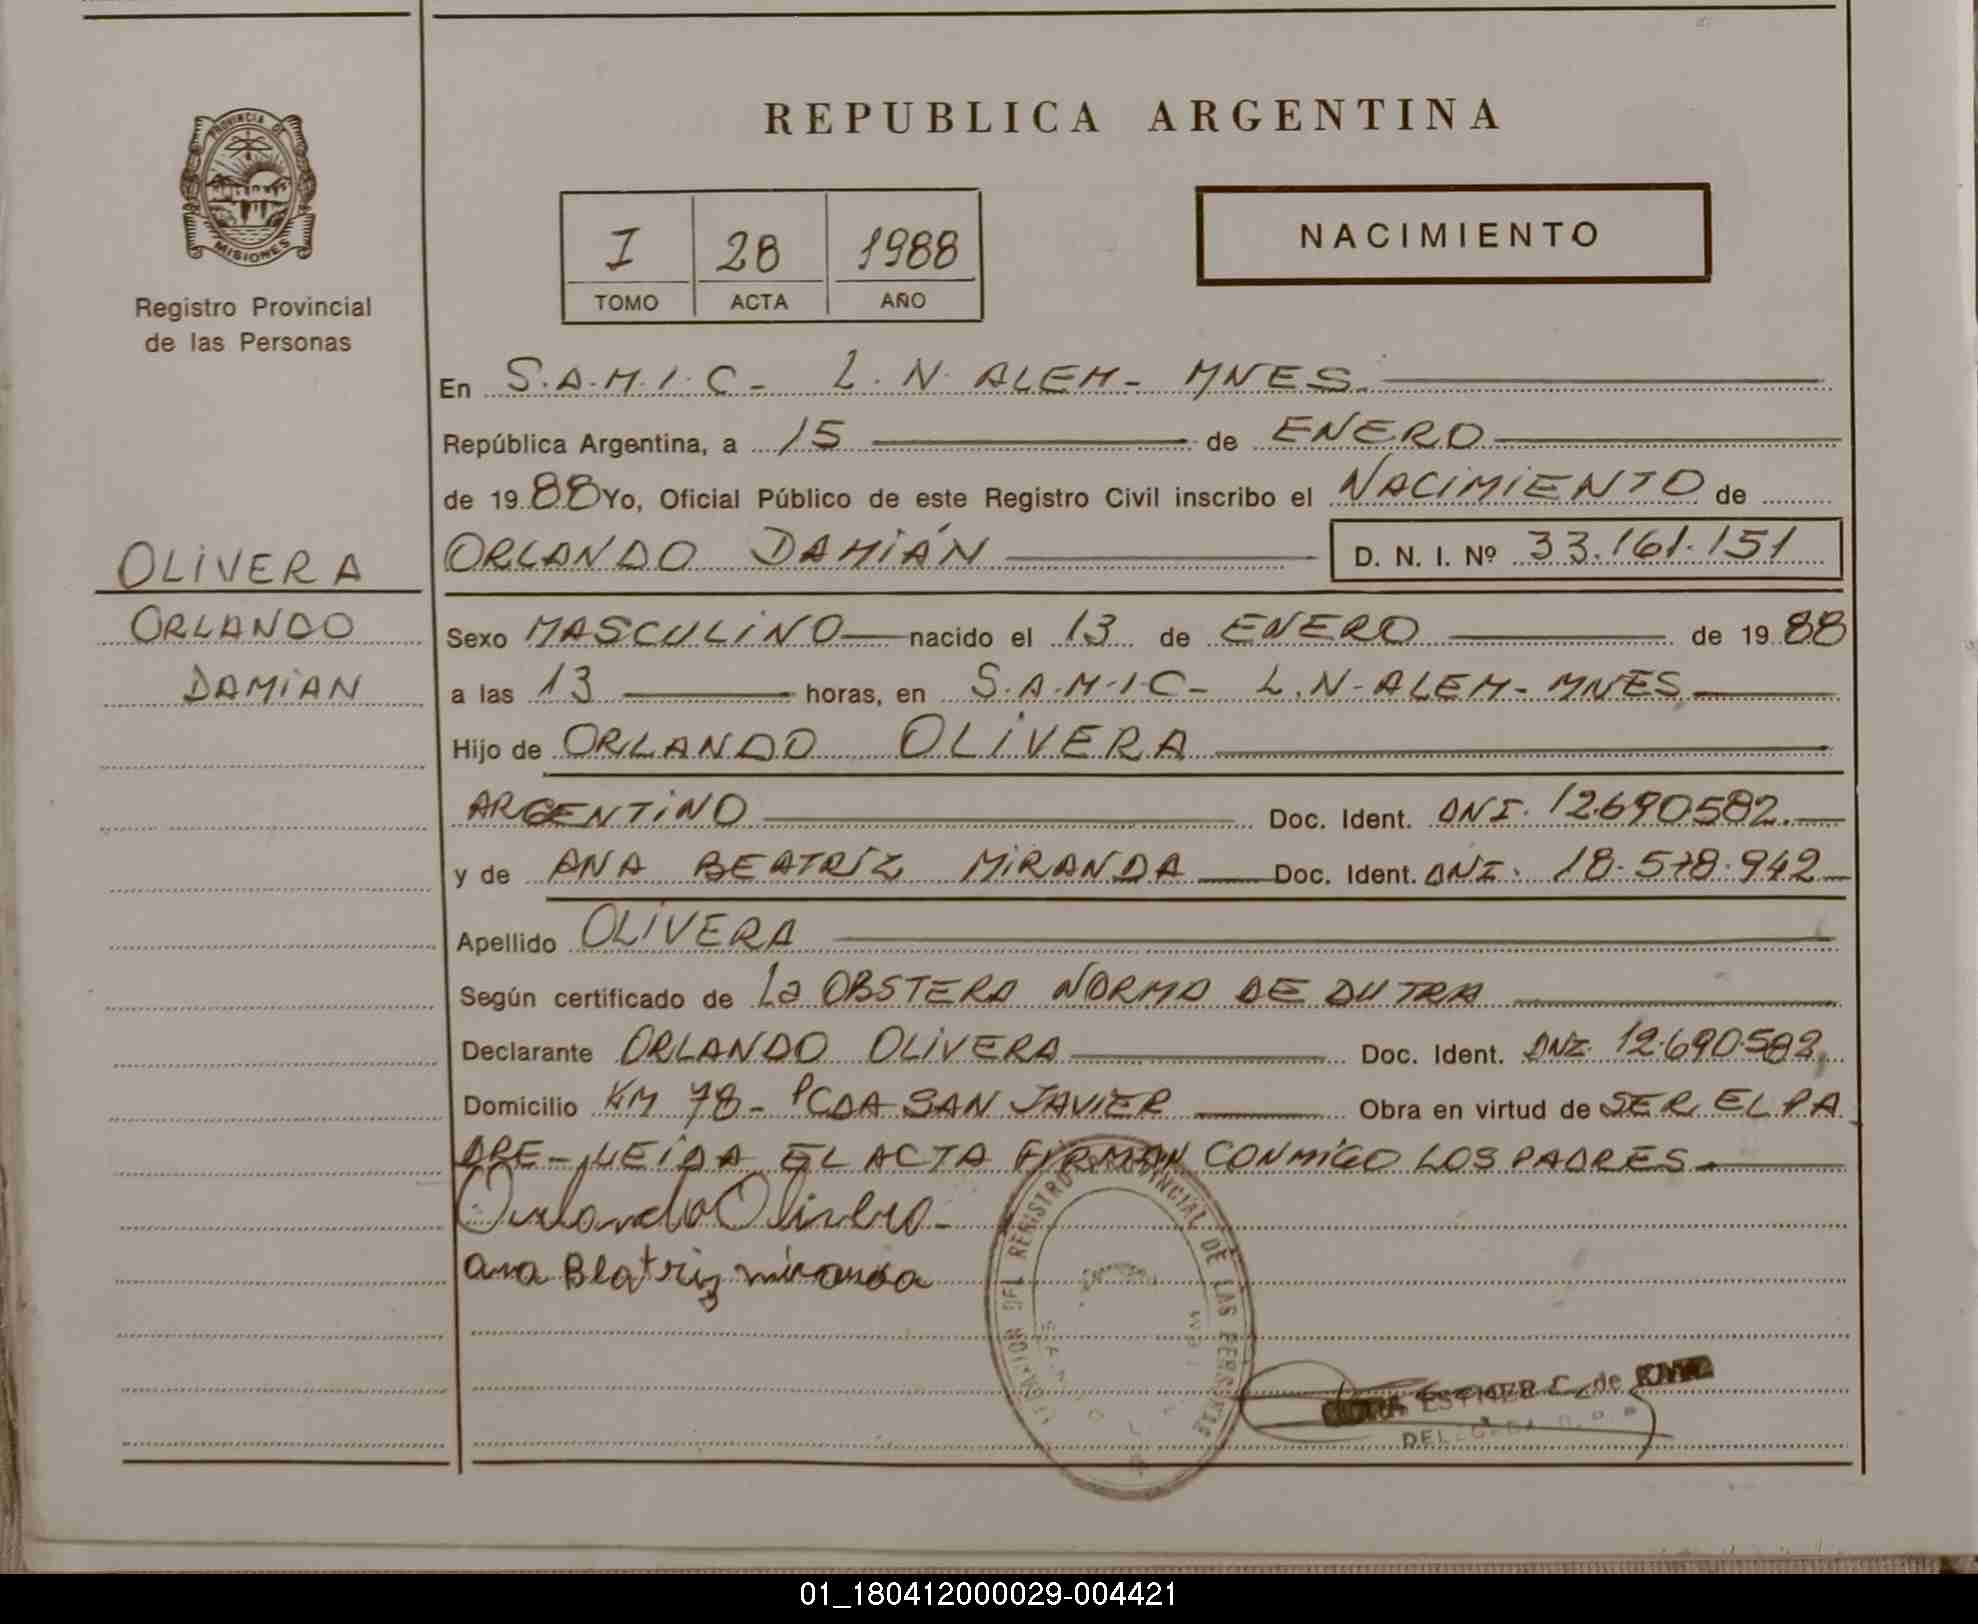 REPUBLICA ARGENTINA
PROVINCIA DE
MISIONES
Registro Provincial
de las Personas
I 28 1988
TOMO ACTA AÑO
NACIMIENTO
En S.A.M.I.C- L.N. ALEM- MNES.
República Argentina, a 15 de ENERO
de 1988 Yo, Oficial Público de este Registro Civil inscribo el NACIMIENTO de
ORLANDO DAMIÁN D. N. I. Nº 33.161.151
OLIVERA
ORLANDO
DAMIAN
Sexo MASCULINO nacido el 13 de ENERO de 1988
a las 13 horas, en S.A.M.I.C- L.N-ALEM-MNES.
Hijo de ORLANDO OLIVERA
ARGENTINO Doc. Ident. DNI. 12690582.
y de ANA BEATRIZ MIRANDA Doc. Ident. DNI. 18.578.942
Apellido OLIVERA
Según certificado de La OBSTERA NORMA DE DUTRA
Declarante ORLANDO OLIVERA Doc. Ident. DNI. 12.690.582,
Domicilio KM 78- PCDA SAN JAVIER Obra en virtud de SER EL PA
DRE-LEIDA EL ACTA FIRMAN CONMIGO LOS PADRES.
Orlando Olivera
Ana Beatriz miranda
REGISTRO PROVINCIAL DE LAS PERSONAS
ESTHER C. de
01_180412000029-004421